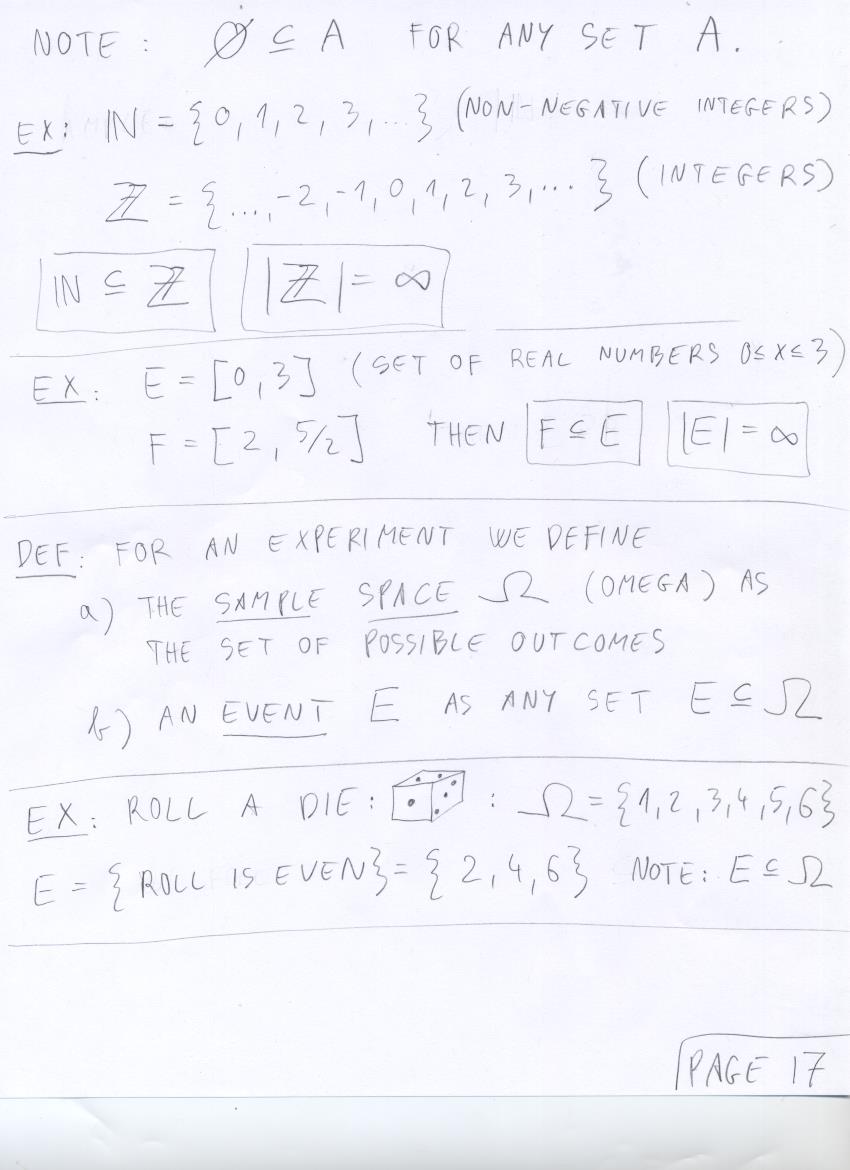 NOTE: ∅ ⊆ A FOR ANY SET A.
EX: ℕ = {0, 1, 2, 3, ...} (NON-NEGATIVE INTEGERS)
ℤ = {..., -2, -1, 0, 1, 2, 3, ...} (INTEGERS)
ℕ ⊆ ℤ |ℤ| = ∞
EX: E = [0, 3] (SET OF REAL NUMBERS 0 ≤ X ≤ 3)
F = [2, 5/2] THEN F ⊆ E |E| = ∞
DEF: FOR AN EXPERIMENT WE DEFINE
a) THE SAMPLE SPACE Ω (OMEGA) AS
THE SET OF POSSIBLE OUTCOMES
b) AN EVENT E AS ANY SET E ⊆ Ω
EX: ROLL A DIE: : Ω = {1, 2, 3, 4, 5, 6}
E = {ROLL IS EVEN} = {2, 4, 6} NOTE: E ⊆ Ω
PAGE 17